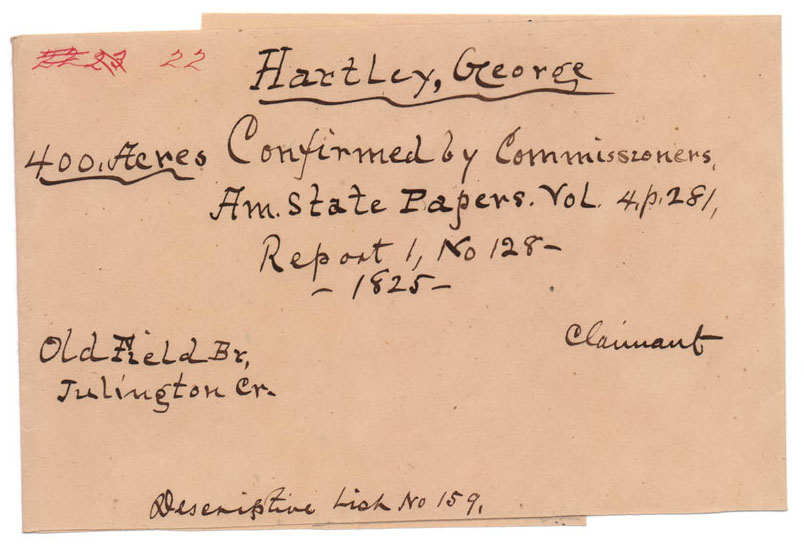 22
Hartley, George
400. Acres Confirmed by Commissioners,
Am. State Papers. Vol. 4, p. 281,
Report 1, No 128-
- 1825 -
Claimant
Old Field Br,
Julington Cr.
Descriptive List No 159.